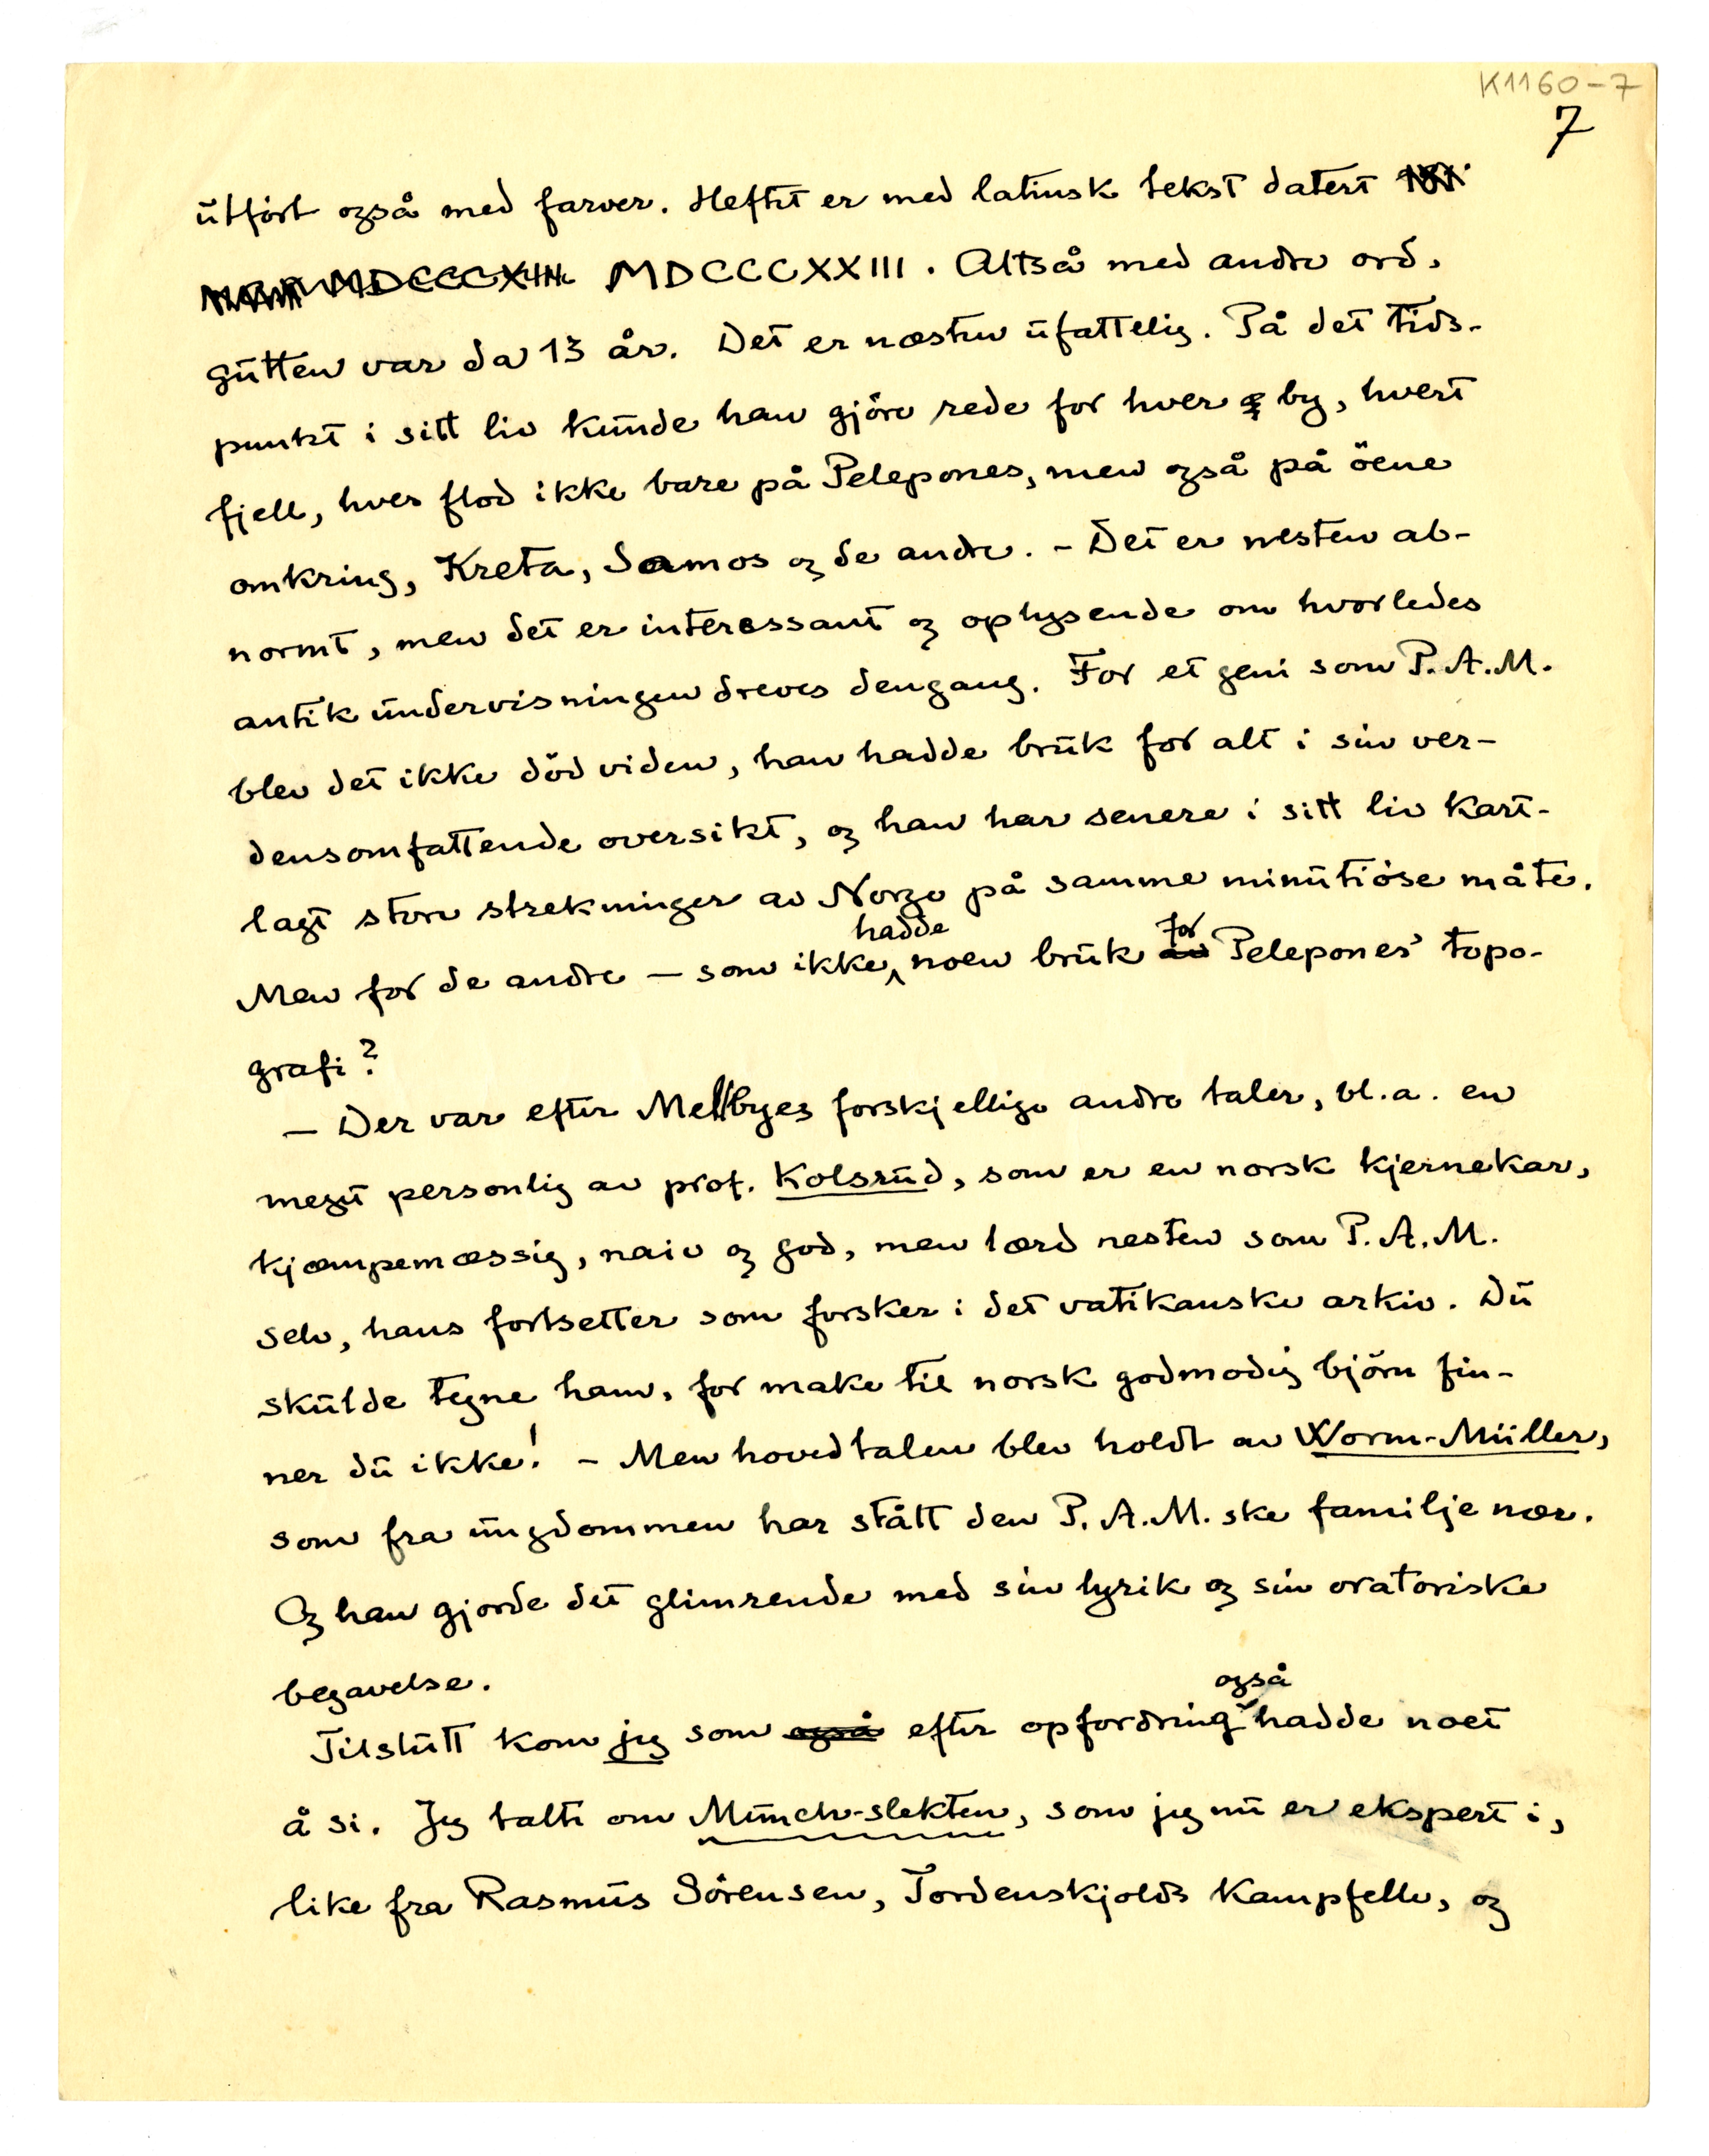 K1160-7
7
utfört også med farver. Heftet er med latinsk tekst datert
MDCCCXIII MDCCCXXIII. Altså med andre ord,
gutten var da 13 år. Det er næsten ufattelig. På det tids-
punkt i sitt liv kunde han gjöre rede for hver by, hvert
fjell, hver flod ikke bare på Pelepones, men også på öene
omkring, Kreta, Samos og de andre. - Det er nesten ab-
normt, men det er interessant og oplysende om hvorledes
antik undervisningen dreves dengang. For et geni som P.A.M.
blev det ikke död viden, han hadde bruk for alt i sin ver-
densomfattende oversikt, og han har senere i sitt liv kart-
lagt store strekninger av Norge på samme minutiöse måte.
Men for de andre — som ikke hadde noen bruk av for Pelepones' topo-
grafi?
— Der var efter Mellbyes forskjellige andre taler, bl.a. en
meget personlig av prof. Kolsrud, som er en norsk kjernekar,
kjæmpemæssig, naiv og god, men lærd nesten som P.A.M.
selv, hans fortsetter som forsker i det vatikanske arkiv. Du
skulde tegne ham, for make til norsk godmodig björn fin-
ner du ikke! - Men hovedtalen blev holdt av Worm-Müller,
som fra ungdommen har stått den P.A.M.ske familje nær.
Og han gjorde det glimrende med sin lyrik og sin oratoriske
begavelse.
Tilslutt kom jeg som også efter opfordring også hadde noet
å si. Jeg talte om Munch-slekten, som jeg nu er ekspert i,
like fra Rasmus Sörensen, Tordenskjolds kampfelle, og